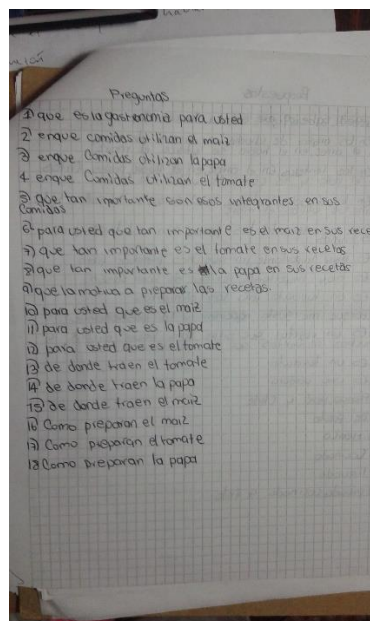 Preguntas
1) que es la gastronomia para usted
2 enque comidas utilizan el maiz
3) enque Comidas utilizan la papa
4. enque Comidas utilizan el tomate
5) que tan importante son esos integrantes en sus
Comidas
6) para usted que tan importante es el maiz en sus rece
7) que tan importante es el tomate en sus recetas
8) que tan importante es la papa en sus recetas
9) que la motiva a preparar las recetas.
10) para usted que es el maiz
11) para usted que es la papa
12) para usted que es el tomate
13) de donde traen el tomate
14) de donde traen la papa
15) de donde traen el maiz
16) Como preparan el maiz
17) Como preparan el tomate
18 Como preparan la papa